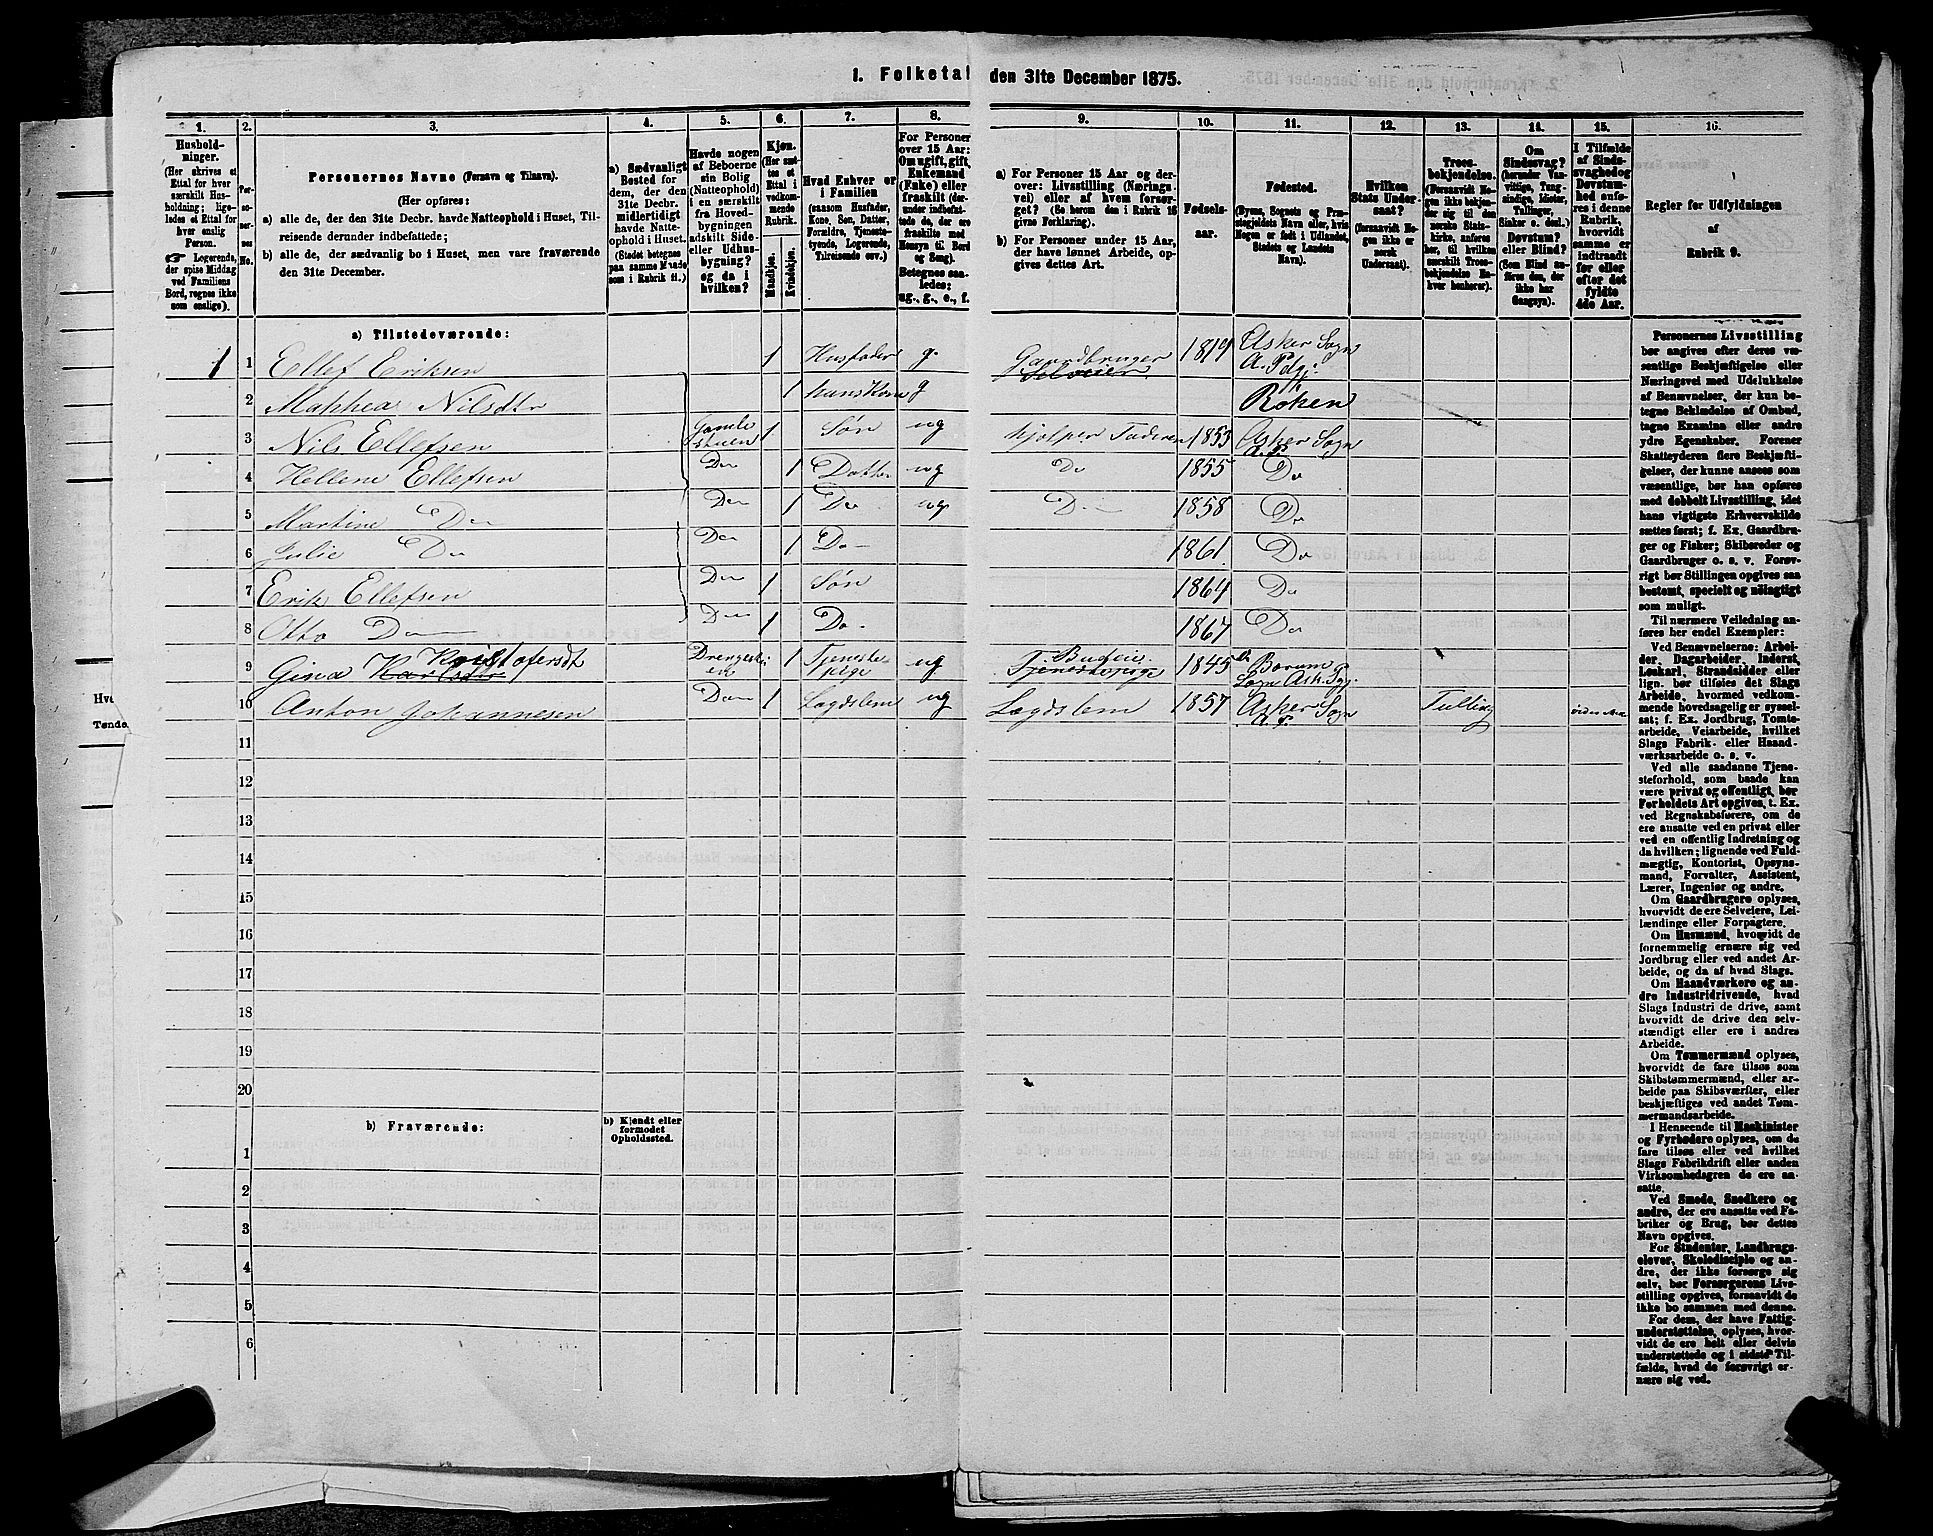 1. Folketal den 31te December 1875.
1. 2. 3. 4. 5. 6. 7. 8. 9. 10. 11. 12. 13. 14. 15. 16.
Hushold-
ninger.
(Her skrives et
Ettal for hver
særskilt Hus-
holdning; lige-
ledes et Ettal for
hver enslig
Person.
☞ Logerende,
der spise Middag
ved Familiens
Bord, regnes ikke
som enslige).
Per-
so-
ner-
nes
No.
Personernes Navne (Fornavn og Tilnavn).
(Her opføres:
a) alle de, der den 31te Decbr. havde Natteophold i Huset, Til-
reisende derunder indbefattede;
b) alle de, der sædvanlig bo i Huset, men vare fraværende
den 31te December.
a) Sædvanligt
Bosted for
dem, der den
31te Decbr.
midlertidigt
havde Natte-
ophold i Huset.
(Stedet betegnes
paa samme Maade
som i Rubrik 11.)
Havde nogen
af Beboerne
sin Bolig
(Natteophold)
i en særskilt
fra Hoved-
bygningen
adskilt Side-
eller Udhus-
bygning?
og da i
hvilken?
Kjøn.
(Her sæt-
tes et
Ettal i
vedkom-
mende
Rubrik.
Mandkjøn.
Kvindekjøn.
Hvad Enhver er
i Familien
(saasom Husfader,
Kone, Søn, Datter,
Forældre, Tjeneste-
tyende, Logerende,
Tilreisende osv.)
For Personer
over 15 Aar:
Om ugift, gift,
Enkemand
(Enke) eller
fraskilt (der-
under indbefat-
tede de, der ere
fraskilte med
Hensyn til Bord
og Seng).
Betegnes saa-
ledes:
ug., g., e., f.
a) For Personer 15 Aar og der-
over: Livsstilling (Nærings-
vei) eller af hvem forsør-
get? (Se herom den i Rubrik 16
givne Forklaring).
b) For Personer under 15 Aar,
der have lønnet Arbeide, op-
gives dettes Art.
Fødsels-
aar.
Fødested.
(Byens, Sognets og Præ-
stegjeldets Navn eller, hvis
Nogen er født i Udlandet,
Stedets og Landets
Navn).
Hvilken
Stats Under-
saat?
(forsaavidt No-
gen ikke er
norsk
Undersaat).
Troes-
bekjendelse.
(Forsaavidt No-
gen ikke bekjen-
der sig til den
norske Stats-
kirke, anføres
her, til hvilken
særskilt Troes-
bekjendelse En-
hver henhører).
Om
Sindssvag?
(herunder Van-
vittige, Tung-
sindige, Idioter,
Tullinger,
Sinker o. desl.)
Døvstum?
eller Blind?
(Som Blind an-
føres den, der
ikke har
Gangsyn).
I Tilfælde
af Sinds-
svaghed og
Døvstum-
hed anfø-
res i denne
Rubrik,
hvorvidt
samme er
indtraadt
før eller
efter det
fyldte
4de Aar.
Regler for Udfyldningen
af
Rubrik 9.
a) Tilstedeværende:
1 1 Ellef Eriksen 1 Husfader g. Gaardbruger Selveier 1819 Asker Sogn A. Pdgj.
2 Mathea Nilsdtr 1 hans Kone g Røken
3 Nils Ellefsen Gamle stuen 1 Søn ug hjelper Faderen 1853 Asker Sogn A. P.
4 Hellene Ellefsen Do 1 Datter ug Do 1855 Do
5 Martine Do Do 1 Do ug Do 1858 Do
6 Julie Do Do 1 Do 1861 Do
7 Erik Ellefsen Do 1 Søn 1864 Do
8 Otto Do Do 1 Do 1867 Do
9 Gina Karlsdtr Kristofersdt Drengest 1 Tjeneste pige ug Budeie Tjenestepige 1845 Bærum Sogn Ask. Pgj.
10 Anton Johannesen Do 1 Lægdslem ug Lægdslem 1857 Asker Sogn A. P. Tulling
11
12
13
14
15
16
17
18
19
20
b) Fraværende:
b) Kjendt eller
formodet
Opholdssted.
1
2
3
4
5
6
Personernes Livsstilling
bør angives efter deres væ-
sentlige Beskjæftigelse eller
Næringsvei med Udelukkelse
af Benævnelser, der kun be-
tegne Beklædelse af Ombud,
tagne Examina eller andre
ydre Egenskaber. Forener
Skatteyderen flere Beskjæfti-
gelser, der kunne ansees som
væsentlige, bør han opføres
med dobbelt Livsstilling, idet
hans vigtigste Erhvervskilde
sættes først; f. Ex. Gaardbru-
ger og Fisker; Skibsreder og
Gaardbruger o. s. v. Forøv-
rigt bør Stillingen opgives saa
bestemt, specielt og nøiagtigt
som muligt.
Til nærmere Veiledning an-
føres her endel Exempler:
Ved Benævnelserne: Arbei-
der, Dagarbeider, Inderst,
Løskarl, Strandsidder eller
lign. bør tilføies det Slags
Arbeide, hvormed vedkom-
mende hovedsagelig er syssel-
sat; f. Ex. Jordbrug, Tomte-
arbeide, Veiarbeide, hvilket
Slags Fabrik- eller Haand-
værksarbeide o. s. v.
Ved alle saadanne Tjene-
steforhold, som baade kan
være privat og offentligt, bør
Forholdets Art opgives, t. Ex.
ved Regnskabsførere, om de
ere ansatte ved en privat eller
ved en offentlig Indretning og
da hvilken; lignende ved Fuld-
mægtig, Kontorist, Opsyns-
mand, Forvalter, Assistent,
Lærer, Ingeniør og andre.
Om Gaardbrugere oplyses,
hvorvidt de ere Selveiere, Lei-
lændinge eller Forpagtere.
Om Husmænd, hvorvidt de
fornemmelig ernære sig ved
Jordbrug eller ved andet Ar-
beide, og da af hvad Slags.
Om Haandværkere og an-
dre Industridrivende, hvad
Slags Industri de drive, samt
hvorvidt de drive den selv-
stændigt eller ere i andres
Arbeide.
Om Tømmermænd oplyses,
hvorvidt de fare tilsøs som
Skibstømmermænd, eller ar-
beide paa Skibsværfter, eller
beskjæftiges ved andet Tøm-
mermandsarbeide.
I Henseende til Maskinister
og Fyrbødere oplyses, om de
fare tilsøs eller ved hvilket
Slags Fabrikdrift eller anden
Virksomhedsgren de ere an-
satte.
Ved Smede, Snedkere og
andre, der ere ansatte ved Fa-
briker og Brug, bør dettes
Navn opgives.
For Studenter, Landbrugs-
elever, Skoledisciple og an-
dre, der ikke forsørge sig
selv, bør Forsørgerens Livs-
stilling opgives, forsaavidt de
ikke bo sammen med denne.
For dem, der have Fattig-
understøttelse, oplyses, hvor-
vidt de ere helt eller delvis
understøttede og i sidste Til-
fælde, hvad de forøvrigt er-
nære sig ved.
Tønde.